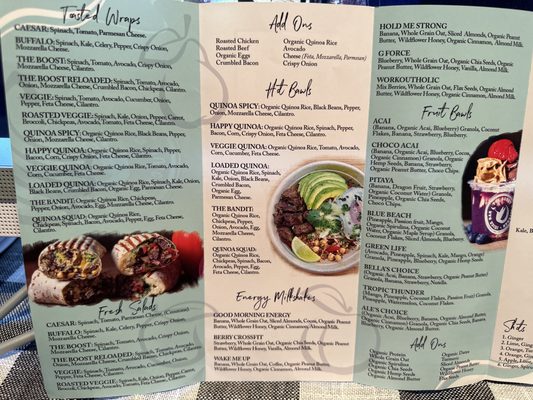 Toasted Wraps
CAESAR: Spinach, Tomato, Parmesan Cheese.
BUFFALO: Spinach, Kale, Celery, Pepper, Crispy Onion,
Mozzarella Cheese.
THE BOOST: Spinach, Tomato, Avocado, Crispy Onion,
Mozzarella Cheese.
THE BOOST RELOADED: Spinach, Tomato, Avocado,
Onion, Mozzarella Cheese, Crumbled Bacon, Chickpeas,
Cilantro.
VEGGIE: Spinach, Tomato, Avocado, Cucumber, Onion,
Pepper, Feta Cheese, Cilantro.
ROASTED VEGGIE: Spinach, Kale, Onion, Pepper, Carrot,
Broccoli, Chickpeas, Feta Cheese, Cilantro.
QUINOA SPICY: Organic Quinoa Rice, Black Beans, Pepper,
Onion, Mozzarella Cheese, Cilantro.
HAPPY QUINOA: Organic Quinoa Rice, Spinach, Pepper,
Bacon, Corn, Crispy Onion, Feta Cheese, Cilantro.
VEGGIE QUINOA: Organic Quinoa Rice, Tomato, Avocado,
Corn, Cucumber, Feta Cheese.
LOADED QUINOA: Organic Quinoa Rice, Spinach, Kale, Onion,
Black Beans, Crumbled Bacon, Organic Egg, Parmesan Cheese.
THE BANDIT: Organic Quinoa Rice, Chickpeas,
Pepper, Avocado, Tomato, Onion, Feta Cheese,
Cilantro.
QUINOA SQUAD: Organic Quinoa Rice,
Chickpeas, Spinach, Avocado, Bacon, Pepper, Egg, Feta
Cheese, Cilantro.
Fresh Salads
CAESAR: Spinach, Tomato, Parmesan Cheese,
BUFFALO: Spinach, Kale, Celery, Pepper, Crispy Onion,
Mozzarella Cheese.
THE BOOST: Spinach, Tomato, Avocado, Crispy Onion,
Mozzarella Cheese.
THE BOOST RELOADED: Spinach, Tomato, Avocado,
Onion, Mozzarella Cheese, Crumbled Bacon, Chickpeas,
Cilantro.
VEGGIE: Spinach, Tomato, Avocado, Cucumber, Onion,
Pepper, Feta Cheese, Cilantro.
ROASTED VEGGIE: Spinach, Kale, Onion, Pepper, Carrot,
Broccoli, Chickpeas, Feta Cheese, Cilantro.
Add Ons
Roasted Chicken
Roasted Beef
Organic Eggs
Crumbled Bacon
Organic Quinoa Rice
Avocado
Cheese (Feta, Mozzarella, Parmesan)
Crispy Onion
Hot Bowls
QUINOA SPICY: Organic Quinoa Rice, Black Beans, Pepper,
Onion, Mozzarella Cheese, Cilantro.
HAPPY QUINOA: Organic Quinoa Rice, Spinach, Pepper,
Bacon, Corn, Crispy Onion, Feta Cheese, Cilantro.
VEGGIE QUINOA: Organic Quinoa Rice, Tomato, Avocado,
Corn, Cucumber, Feta Cheese.
LOADED QUINOA:
Organic Quinoa Rice, Spinach,
Kale, Onion, Black Beans,
Crumbled Bacon,
Organic Egg,
Parmesan Cheese.
THE BANDIT:
Organic Quinoa Rice,
Chickpeas, Pepper,
Avocado, Tomato,
Onion, Feta Cheese,
Cilantro.
QUINOA SQUAD:
Organic Quinoa Rice,
Chickpeas, Spinach,
Avocado, Bacon,
Pepper, Egg, Feta
Cheese, Cilantro.
Energy Milkshakes
GOOD MORNING ENERGY
Banana, Whole Grain Oat, Sliced Almonds, Cocoa, Organic Peanut
Butter, Wildflower Honey, Organic Cinnamon, Almond Milk.
BERRY CROSSFIT
Strawberry, Whole Grain Oat, Organic Chia Seeds, Organic Peanut
Butter, Wildflower Honey, Vanilla, Almond Milk.
WAKE ME UP
Banana, Whole Grain Oat, Coffee, Organic Peanut Butter,
Wildflower Honey, Organic Cinnamon, Almond Milk.
HOLD ME STRONG
Banana, Whole Grain Oat, Sliced Almonds, Organic Peanut
Butter, Wildflower Honey, Organic Cinnamon, Almond Milk.
G FORCE
Blueberry, Whole Grain Oat, Organic Chia Seeds, Organic
Peanut Butter, Wildflower Honey, Vanilla, Almond Milk.
WORKOUTHOLIC
Mix Berries, Whole Grain Oat, Flax Seeds, Organic Almond
Butter, Wildflower Honey, Organic Cinnamon, Almond Milk.
Fruit Bowls
ACAI
(Banana, Organic Acai, Blueberry) Granola, Coconut
Flakes, Banana, Strawberry, Blueberry.
CHOCO ACAI
(Banana, Organic Acai, Blueberry,
Organic Cinnamon) Granola, Organic
Hemp Seeds, Banana, Strawberry,
Organic Peanut Butter, Choco Chips.
PITAYA
(Banana, Dragon Fruit, Strawberry,
Coconut Water) Granola,
Pineapple, Organic Chia Seeds,
Choco Chips.
BLUE BEACH
(Pineapple, Passion fruit, Mango,
Organic Spirulina, Coconut
Water, Organic Maple Syrup) Granola,
Coconut Flakes, Sliced Almonds, Blueberry.
GREEN LIFE
(Avocado, Pineapple, Spinach, Kale, Mango, Orange)
Granola, Pineapple, Blueberry, Coconut Flakes.
BELLA'S CHOICE
(Organic Acai, Banana, Strawberry, Organic Peanut Butter)
Granola, Banana, Strawberry, Nutella.
TROPIC THUNDER
(Mango, Pineapple, Coconut Flakes, Passion Fruit) Granola,
Pineapple, Watermelon, Coconut Flakes.
ALE'S CHOICE
(Organic Acai, Blueberry, Banana, Organic Almond Butter)
Granola, Organic Chia Seeds, Blueberry, Banana,
Organic Almond Butter.
Add Ons
Organic Protein
Organic Collagen
Organic Spirulina
Organic Maca
Organic Chia Seeds
Organic Hemp Seeds
Organic Almond Butter
Organic Dates
Turmeric
Sliced Almonds
Organic Peanut Butter
Wildflower Honey
Flax Seeds
Shots
1. Ginger
2. Lime, Ging
3. Orange, Tur
4. Orange, Ging
5. Apple, Lime,